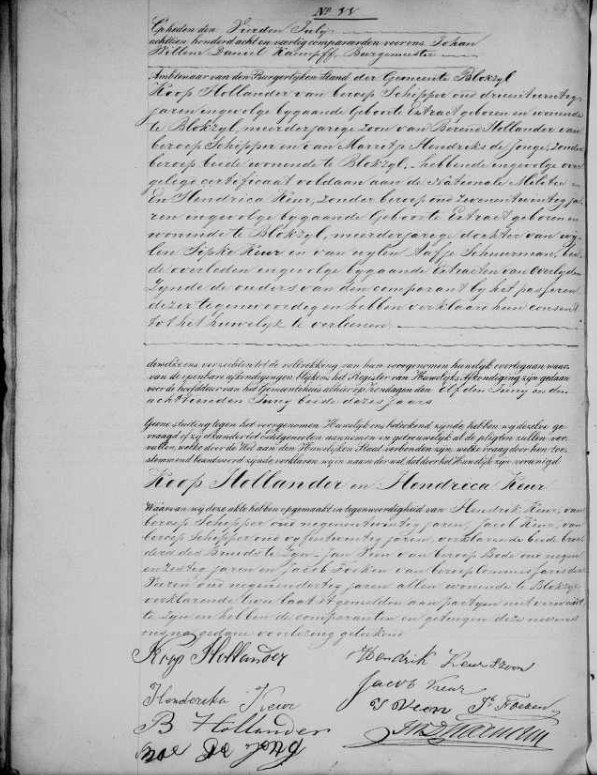 No 11
Opheden den Vierden July
achttien honderd acht en veertig compareerden voor ons Johan
Willem Daniel Kampff, Burgemeester
Ambtenaar van den Burgerlijken Stand der Gemeente Blokzyl
Koop Hollander van beroep Schipper oud drieentwintig
jaren ingevolge bygaande Geboorte Extract geboren en wonende
te Blokzyl, meerderjarige zoon van Berend Hollander van
beroep Schipper en van Harretje Hendriks de Jonge, zonder
beroep beide wonende te Blokzyl, hebbende ingevolge over
gelegd certificaat voldaan aan de Nationale Militie
En Hendrica Keur, zonder beroep oud zevenentwintig ja
ren ingevolge bygaande Geboorte Extract geboren en
wonende te Blokzyl, meerderjarige dochter van wy
len Sipke Keur en van wylen Aafje Schuurman, bei
de overleden ingevolge bygaande extracten van Overlyden
Zynde de ouders van den comparant by het passeren
dezer tegenwoordig en hebben verklaard hun consent
tot het huwelyk te verleenen.
dewelke ons verzochten tot de voltrekking van hun voorgenomen huwelijk over te gaan waar
van de openbare afkondigingen blijkens het Register van Huwelijks Afkondiging zijn gedaan
voor de hoofddeur van het Gemeentehuis alhier op Zondagen den Elfden Juny en den
achttienden Juny beide dezes jaars
Geene stuiting tegen het voorgenomen Huwelijk ons bekend zijnde hebben wij dezelve ge-
vraagd of zij elkander tot Echtgenooten aannemen en getrouwelijk al de pligten zullen ver-
vullen, welke door de Wet aan den Huwelijken Staat verbonden zijn, welke vraag door hun toe-
stemmend beantwoord zijnde verklaren wij in naam der wet, dat door het Huwelijk zijn vereenigd
Koop Hollander en Hendrica Keur
Waarvan wij deze akte hebben opgemaakt in tegenwoordigheid van Hendrik Keur, van
beroep Schipper oud negenentwintig jaren, Jacob Keur, van
beroep Schipper oud vyfentwintig jaren, verklarende beide broe
ders des Bruids te zyn, Jan Veen van beroep Bode oud negen
en zestig jaren en Jacob van beroep Commissaris der
Veeren oud negenendertig jaren allen wonende te Blokzyl
verklarende de twee laatstgemelden aan partyen niet verwant
te zyn en hebben de comparanten en getuigen deze nevens
ons na gedane voorlezing geteekend
Koop Hollander
Hendrik Keur Szoon
Jacob Keur
Henderika Keur
J Veen
B Hollander
de Jong